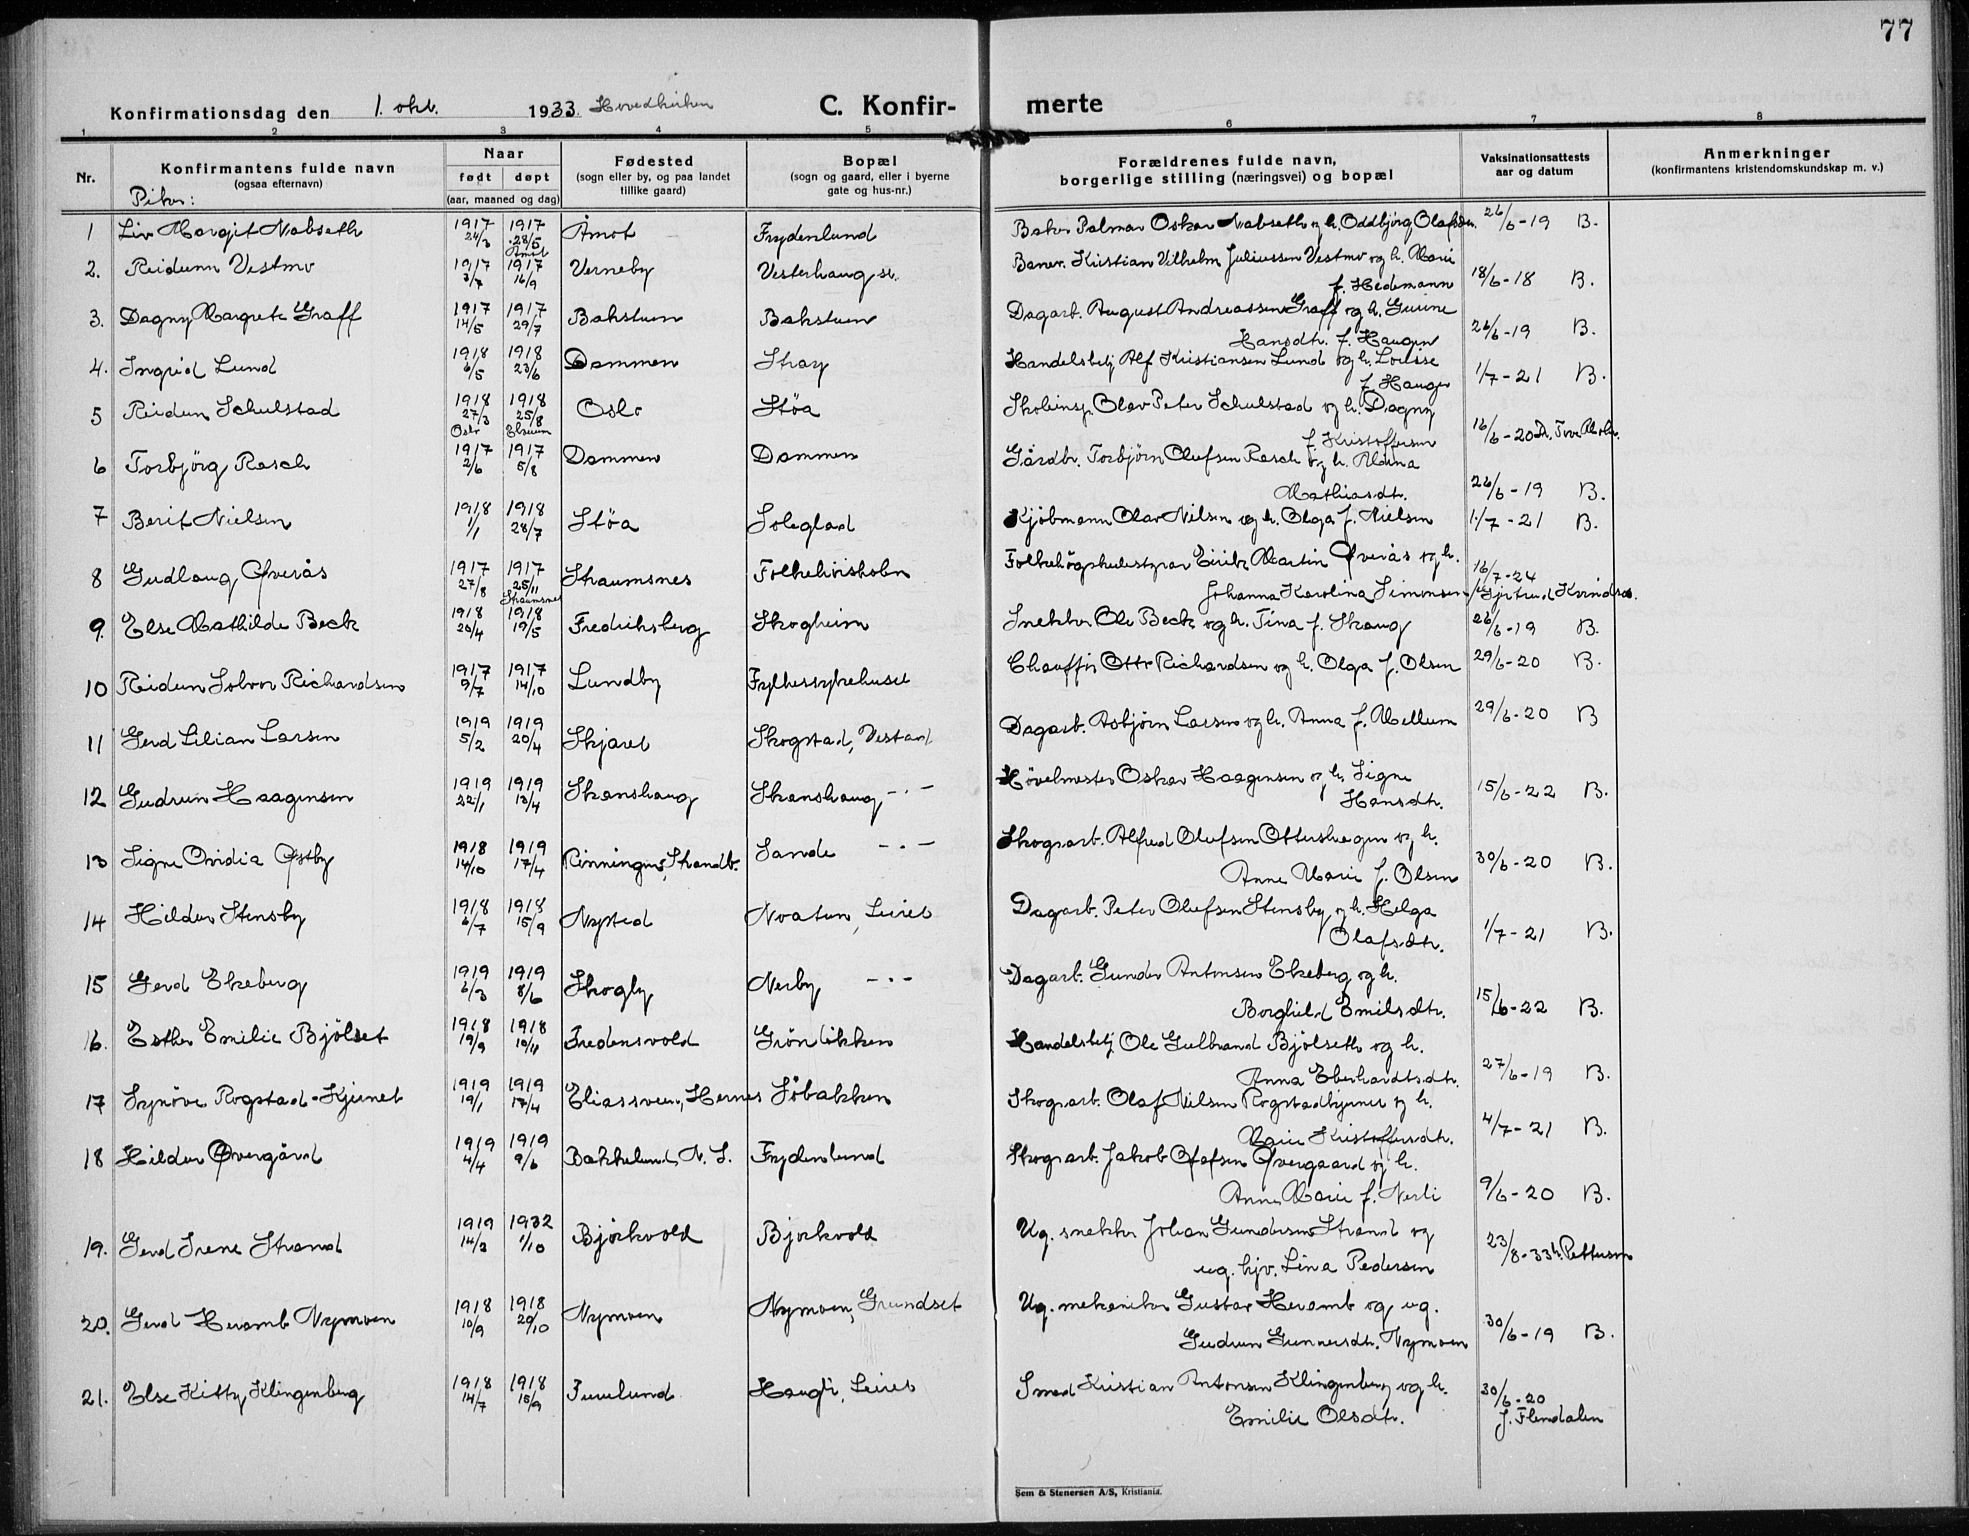 77
Konfirmationsdag den 1. okt. 1933 Hovedkirken C. Konfir- merte
1 2 3 4 5 6 7 8
Nr. Konfirmantens fulde navn (ogsaa efternavn) Naar født døpt (aar, maaned og dag) Fødested (sogn eller by, og paa landet tillike gaard) Bopæl (sogn og gaard, eller i byerne gate og hus-nr.) Forældrenes fulde navn, borgerlige stilling (næringsvei) og bopæl Vaksinationsattests aar og datum Anmerkninger (konfirmantens kristendomskundskap m. v.)
Piker:
1 Liv Margit Nabseth 1917 24/3 1917 28/5 Åmot Åmot Frydenlund Baker Palmar Oskar Nabseth og h. Oddbjørg Olafsdtr. 26/6-19 B.
2. Reidunn Vestmo 1917 3/7 1917 16/9 Verneby Vesterhaug sk. Banev. Kristian Vilhelm Juliussen Vestmo og h. Marie
f. Hedemann 18/6-18 B.
3. Dagny Margrete Graff 1917 14/5 1917 29/7 Bakstuen Bakstuen Dagarb. August Andreassen Graff og h. Gurine
Hansdtr. f. Haugen 26/6-19 B.
4. Ingrid Lund 1918 6/5 1918 23/6 Dammen Stray Handelsbetj. Alf Kristiansen Lund og h. Louise
f. Hauger 1/7-21 B.
5 Reidun Schulstad 1918 27/3 Oslo 1918 25/8 Elverum Oslo Støa Skoleinsp. Olav Peter Schulstad og h. Dagny
f. Kristoffersen 16/6-20 Dr. Tove Mohr.
6 Torbjørg Rasch 1917 2/6 1917 5/8 Dammen Dammen Gårdbr. Torbjørn Olufsen Rasch og h. Mina
Mathiasdtr. 26/6-19 B.
7 Berit Nielsen 1918 1/1 1918 28/7 Støa Soleglad Kjöbmann Olav Nilsen og h. Olga f. Nielsen 1/7-21 B.
8 Gudlaug Øverås 1917 27/8 1917 25/11 Straumsnes Straumsnes Folkehöiskolen Folkehögskulestyrar Eirik Martin Øverås og h.
Johanna Karolina Simonsen 16/7-24 Gjertrud Kvindes.
9. Else Mathilde Beck 1918 20/4 1918 19/5 Fredriksberg Skogheim Snekker Ole Beck og h. Tina f. Skaug 26/6-19 B.
10 Reidun Solvor Richardsen 1917 9/7 1917 14/10 Lundby Fylkessykehuset Chauffør Otto Richardsen og h. Olga f. Olsen 29/6-20 B.
11 Gerd Lilian Larsen 1919 5/2 1919 20/4 Skjaret Skogstad, Vestad Dagarb. Asbjørn Larsen og h. Anna f. Mellum 29/6-20 B
12 Gudrun Haagensen 1919 22/1 1919 13/4 Skanshaug Skanshaug -"- Hövelmester Oskar Haagensen og h. Signe
Hansdtr. 15/6-22 B.
13 Signe Ovidia Østby 1918 14/10 1919 17/4 Rönningen, Strandb. Sande -"- Skogsarb. Alfred Olufsen Ottershagen og h.
Anne Marie f. Olsen 30/6-20 B.
14 Hilda Stensby 1918 6/7 1918 15/9 Nysted Noatun, Leiret Dagarb. Peter Olufsen Stensby og h. Helga
Olafsdtr. 1/7-21 B.
15 Gerd Ekeberg 1919 6/3 1919 8/6 Skogly Nerby -"- Dagarb. Gunder Antonsen Ekeberg og h.
Borghild Emilsdtr. 15/6-22 B.
16. Esther Emilie Bjölset 1918 19/9 1918 10/11 Fredensvold Gröndökken Handelsbetj. Ole Gulbrand Bjölseth og h.
Anna Eberhardtsdtr. 27/6-19 B.
17 Synöve Rogstad-Kjernet 1919 19/1 1919 17/4 Eliassveen, Hernes Söbakken Skogsarb. Olaf Nilsen Rogstadkjernet og h.
Marie Kristoffersdtr. 4/7-21 B.
18 Hilda Övergård 1919 4/4 1919 9/6 Bakkelund, N. S. Frydenlund Skogsarb. Jakob Olafsen Övergaard og h.
Anne Marie f. Nerli 9/6-20 B.
19. Gerd Irene Strand 1919 14/2 1932 1/10 Bjørkvold Bjørkvold Ug. snekker Johan Gundersen Strand og
ug. hjv. Lina Pedersen 23/8-33 h. Pettersen
20. Gerd Heramb Nymoen 1918 10/9 1918 20/10 Nymoen Nymoen, Grundset Ug. mekaniker Gustav Heramb og ug.
Gudrun Gunnersdtr. Nymoen 30/6-19 B.
21. Else Kitty Klingenberg 1918 14/7 1918 15/9 Furulund Haugli, Leiret Smed Kristian Antonsen Klingenberg og h.
Emilie Olsdtr. 30/6-20 J. Flendalen
Sem & Stenersen A/S, Kristiania.